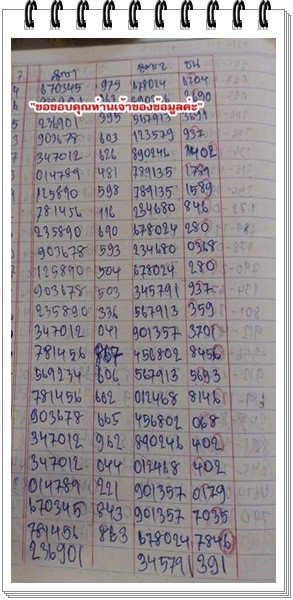 670345 979 678024 6704
"ขอขอบคุณท่านเจ้าของข้อมูลค่ะ"
236901 995 567913 3691
903678 603 123579 937
347012 626 890246 1402
014789 481 789135 1789
125890 598 789135 1589
781456 116 234680 846
235890 690 678024 280
903678 593 234680 0368
125890 504 678024 280
903678 503 345791 937
235890 336 567913 359
347012 041 901357 3701
781456 867 456802 8456
569234 606 567913 5693
781456 662 012468 8146
903678 665 456802 068
347012 962 890246 402
347012 044 012468 402
014789 221 901357 0179
670345 843 901357 7035
781456 863 678024 7846
236901 345791 391